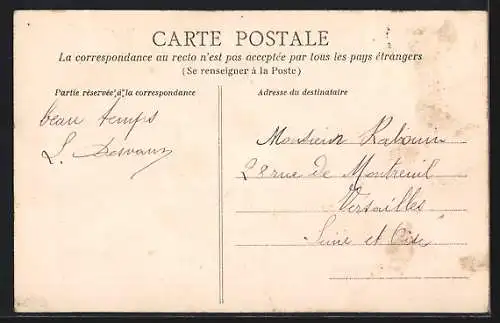 CARTE POSTALE
La correspondance au recto n'est pas acceptée par tous les pays étrangers
(Se renseigner à la Poste)
Partie réservée à la correspondance
Adresse du destinataire
beau temps
L.
Monsieur Rabouin
28 rue de Montreuil
Versailles
Seine et Oise